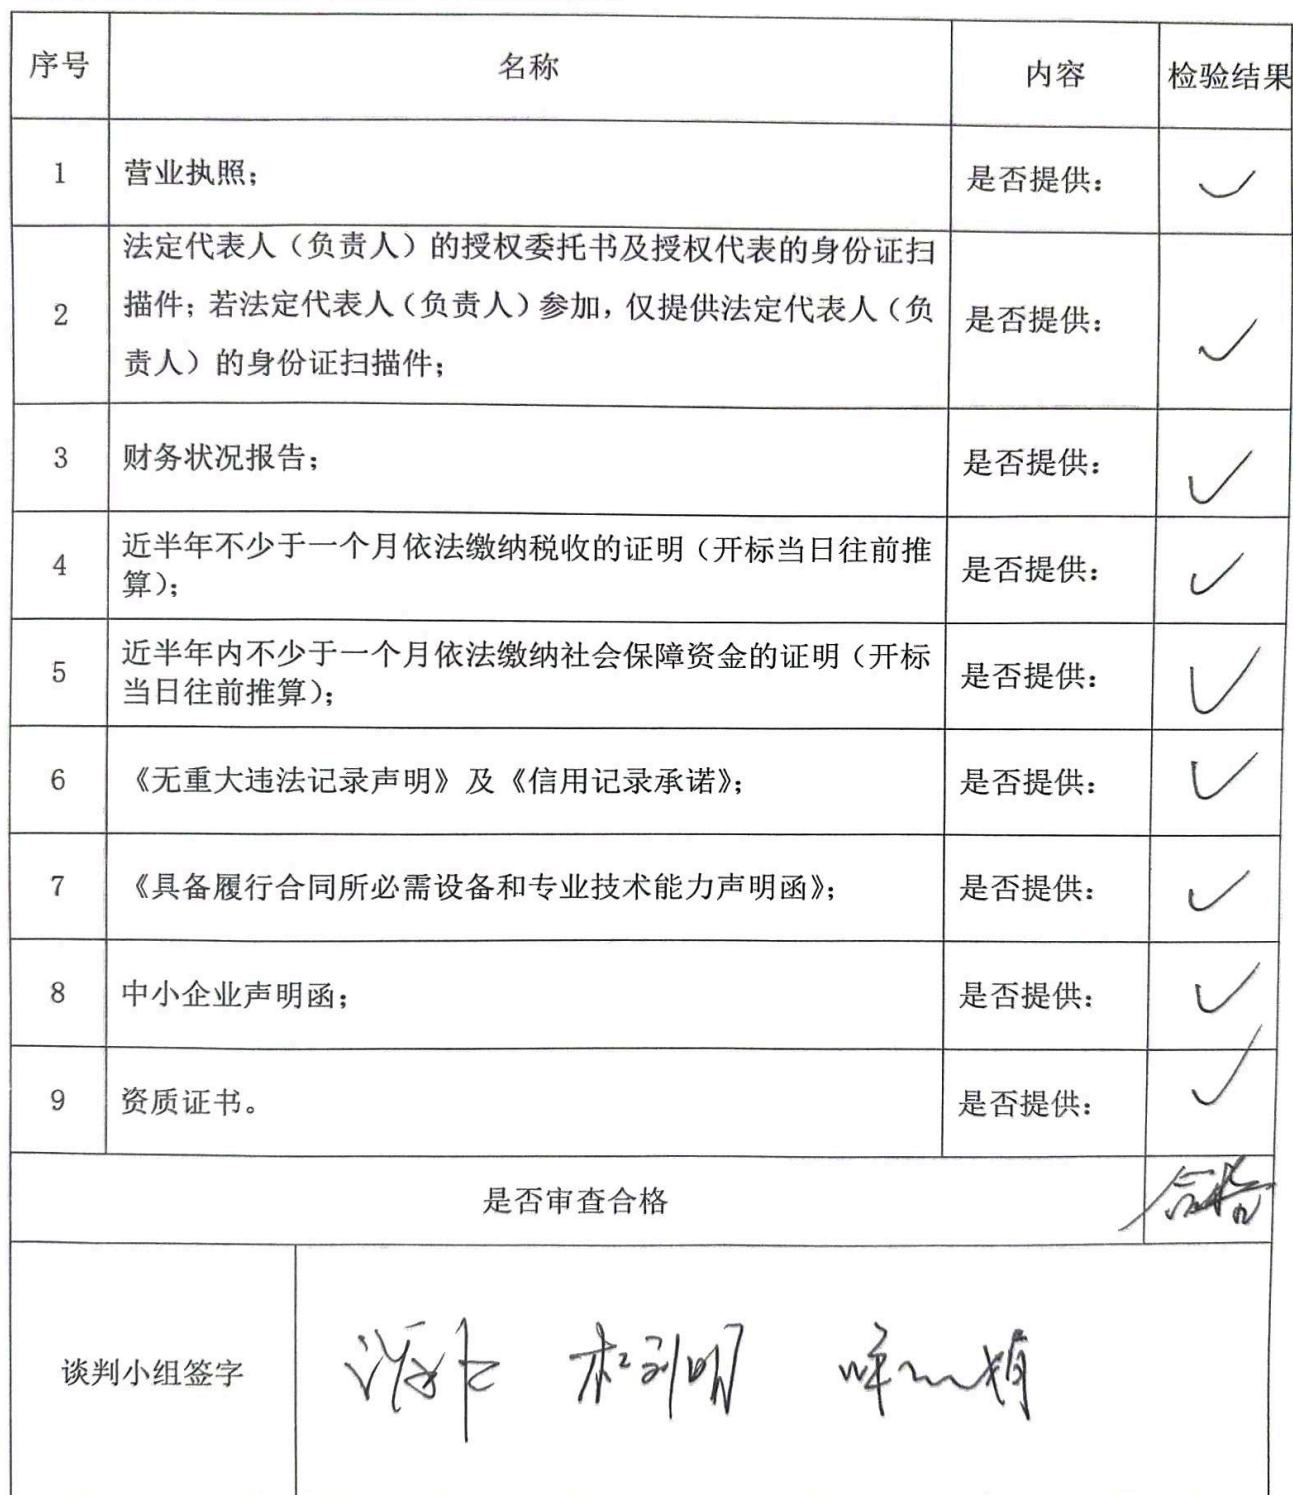 序号 名称 内容 检验结果
1 营业执照； 是否提供： ✓
法定代表人（负责人）的授权委托书及授权代表的身份证扫
2 描件；若法定代表人（负责人）参加，仅提供法定代表人（负 是否提供： ✓
责人）的身份证扫描件；
3 财务状况报告； 是否提供： ✓
近半年不少于一个月依法缴纳税收的证明（开标当日往前推
4 是否提供： ✓
算）；
近半年内不少于一个月依法缴纳社会保障资金的证明（开标
5 是否提供： ✓
当日往前推算）；
6 《无重大违法记录声明》及《信用记录承诺》； 是否提供： ✓
7 《具备履行合同所必需设备和专业技术能力声明函》； 是否提供： ✓
8 中小企业声明函； 是否提供： ✓
9 资质证书。 是否提供： ✓
是否审查合格 合格
谈判小组签字